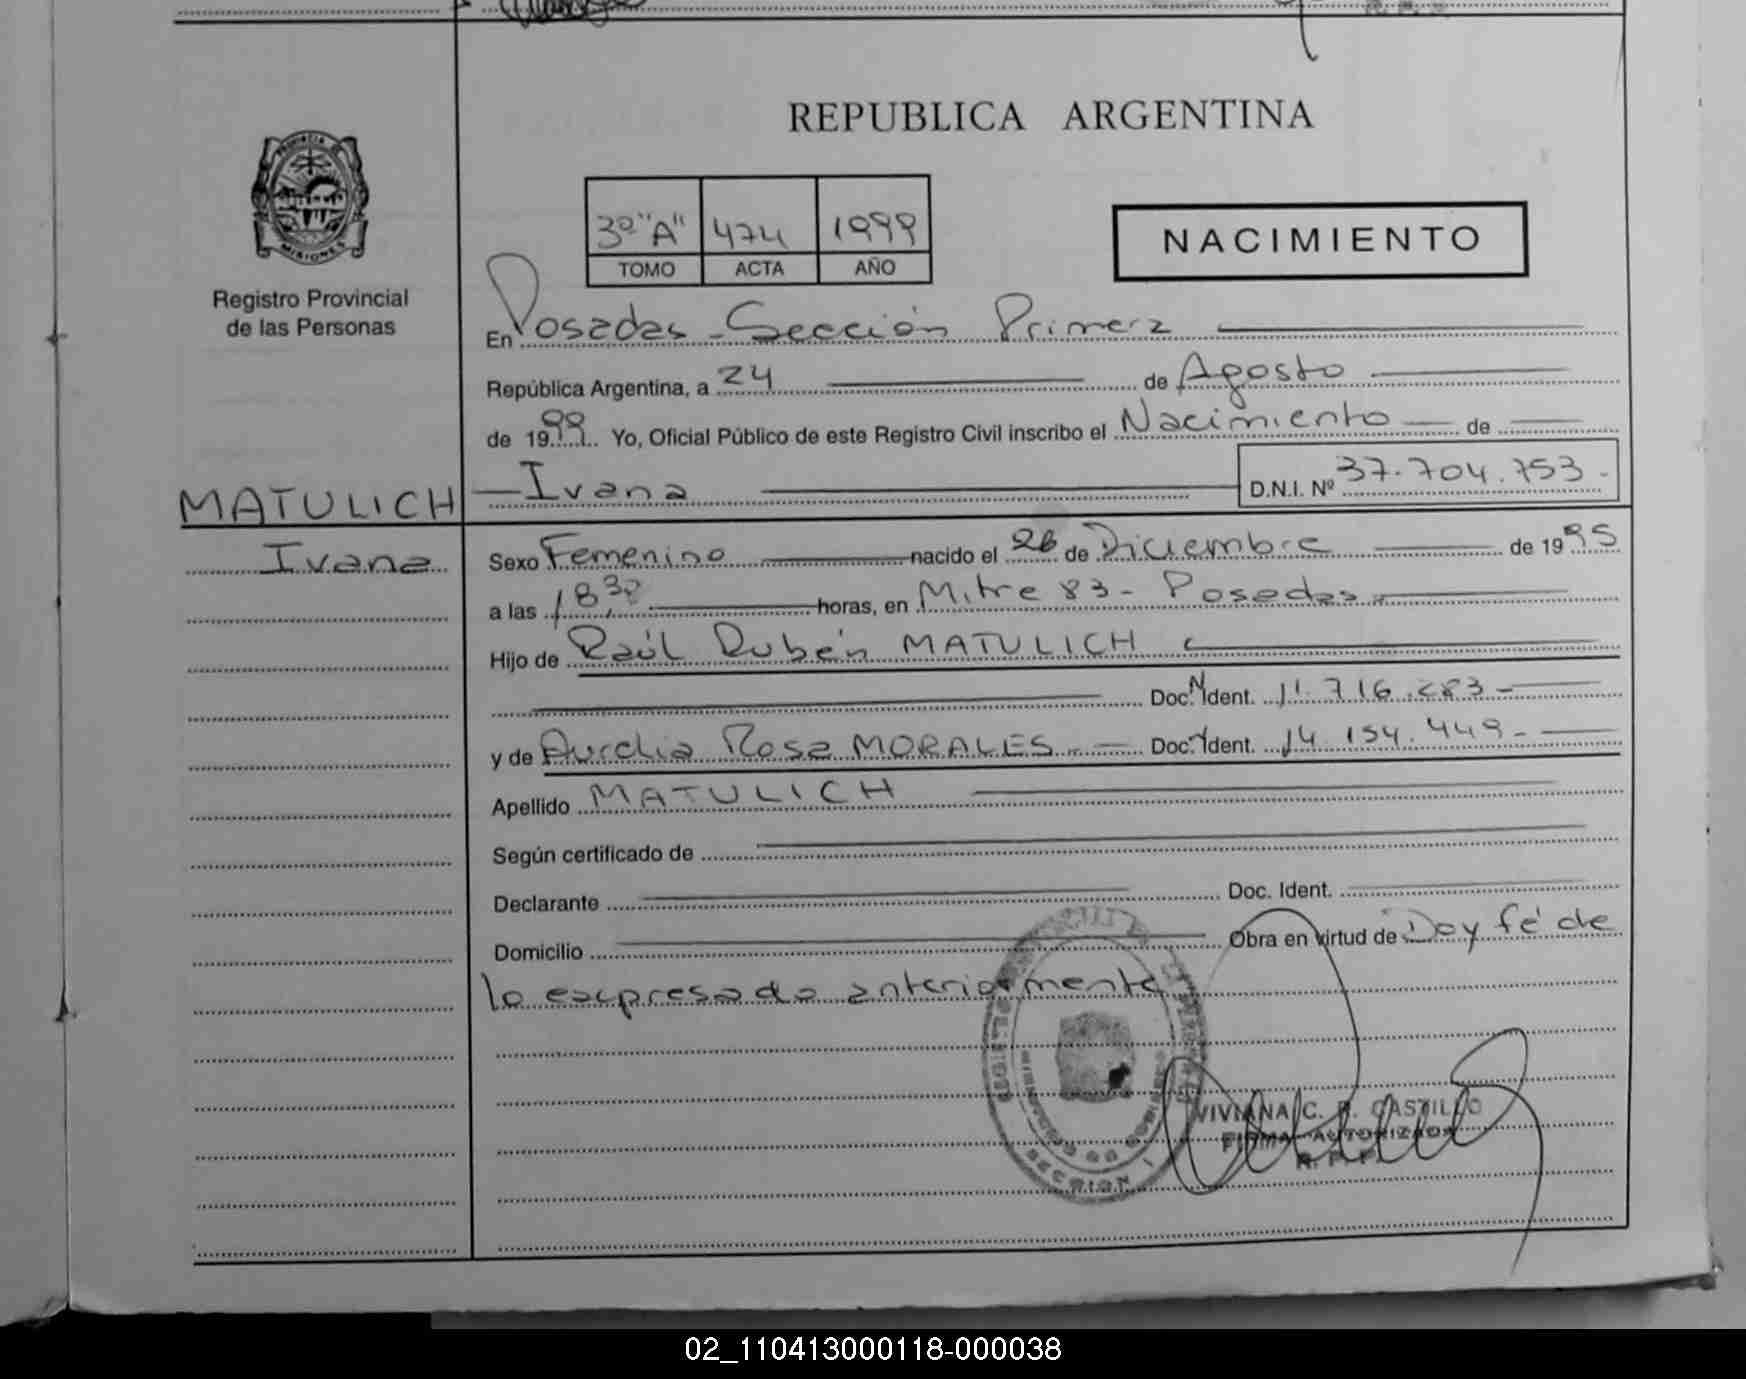 REPUBLICA ARGENTINA
PROVINCIA DE
MISIONES
Registro Provincial
de las Personas
3º "A" 474 1999
TOMO ACTA AÑO
NACIMIENTO
En Posadas - Sección Primera
República Argentina, a 24 de Agosto
de 1999. Yo, Oficial Público de este Registro Civil inscribo el Nacimiento de
Ivana D.N.I. Nº 37.704.753.
MATULICH
Ivana
Sexo Femenino nacido el 26 de Diciembre de 1995
a las 18 30 horas, en Mitre 83 - Posadas
Hijo de Raúl Rubén MATULICH
Doc. Ident. 11.716.283-
y de Aurelia Rosa MORALES Doc. Ident. 14.154.449-
Apellido MATULICH
Según certificado de
Declarante Doc. Ident.
Domicilio Obra en virtud de Doy fé de
lo expresado anteriormente
VIVIANA C. R. CASTILLO
FIRMA AUTORIZADA
R. P. P.
02_110413000118-000038